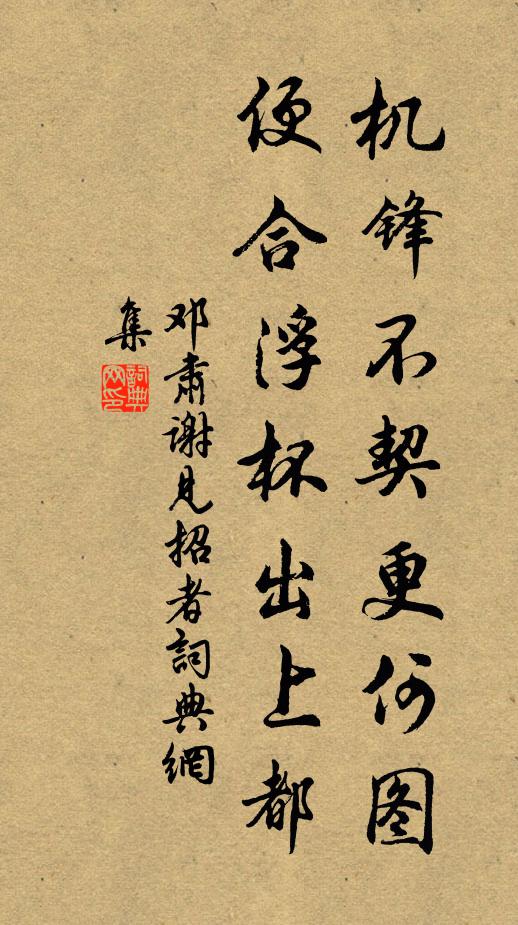 机锋不契更何图
便合浮杯出上都
邓肃谢见招者詞典網
集
詞典
网印